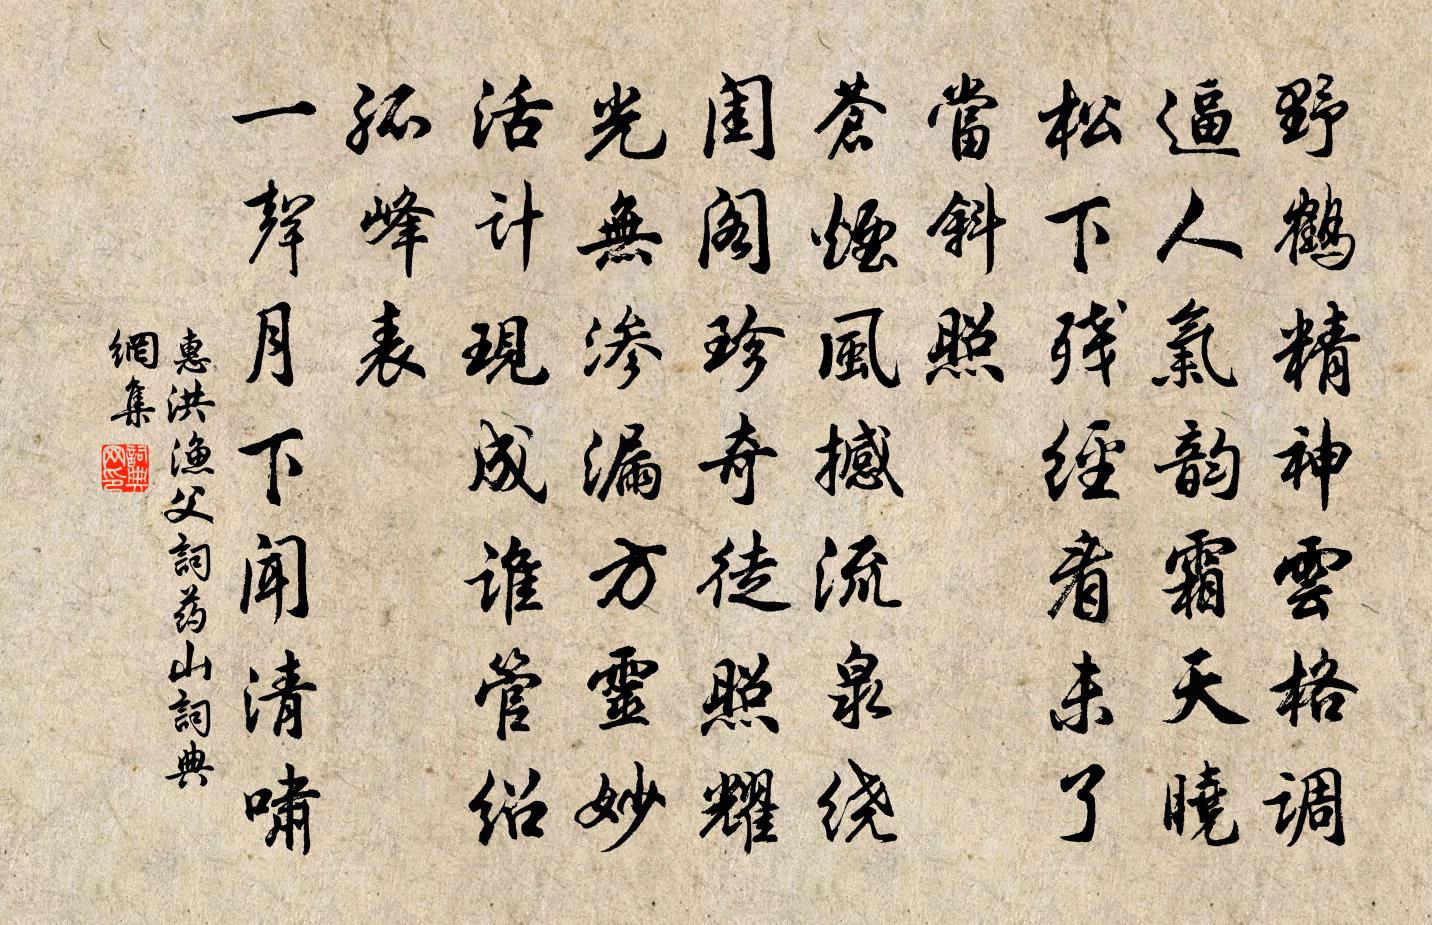 野鹤精神雲格调
逼人氣韵霜天曉
松下残經看未了
當斜照
蒼煙風撼流泉绕
闺阁珍奇徒照耀
光無渗漏方靈妙
活计現成谁管绍
孤峰表
一聲月下闻清啸
惠洪渔父詞药山詞典
網集
詞典网印